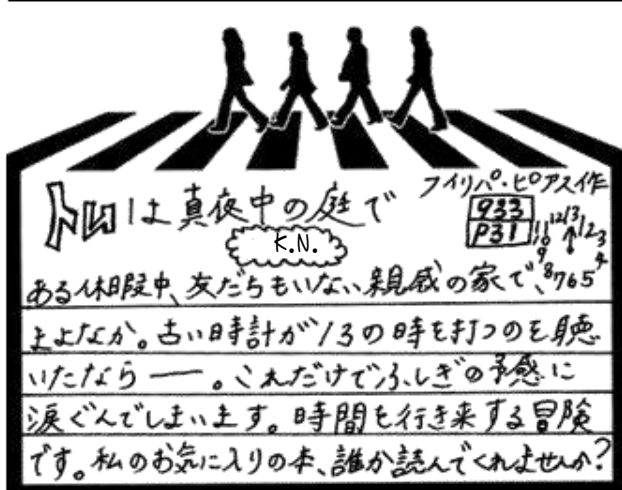 トムは真夜中の庭で
フィリパ・ピアス作
933
P31
12 13 1 2 3 4 5 6 7 8 9 10 11
K.N.
ある休暇中、友だちもいない親戚の家で、
まよなか。古い時計が13の時を打つのを聴
いたなら――。これだけでふしぎの予感に
涙ぐんでしまいます。時間を行き来する冒険
です。私のお気に入りの本、誰か読んでくれませんか?